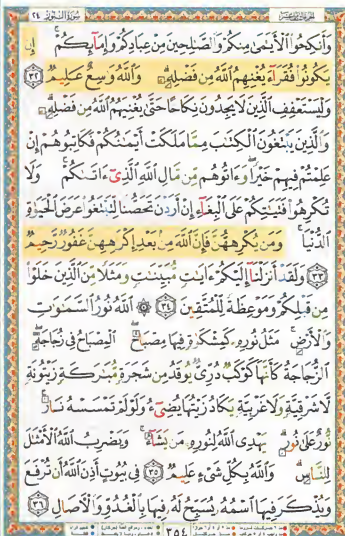 الجزء الثامن عشر سورة النور ٢٤
وَأَنكِحُوا۟ ٱلْأَيَـٰمَىٰ مِنكُمْ وَٱلصَّـٰلِحِينَ مِنْ عِبَادِكُمْ وَإِمَآئِكُمْ ۚ إِن
يَكُونُوا۟ فُقَرَآءَ يُغْنِهِمُ ٱللَّهُ مِن فَضْلِهِۦ ۗ وَٱللَّهُ وَٰسِعٌ عَلِيمٌ ٣٢
وَلْيَسْتَعْفِفِ ٱلَّذِينَ لَا يَجِدُونَ نِكَاحًا حَتَّىٰ يُغْنِيَهُمُ ٱللَّهُ مِن فَضْلِهِۦ ۗ
وَٱلَّذِينَ يَبْتَغُونَ ٱلْكِتَـٰبَ مِمَّا مَلَكَتْ أَيْمَـٰنُكُمْ فَكَاتِبُوهُمْ إِنْ
عَلِمْتُمْ فِيهِمْ خَيْرًا ۖ وَءَاتُوهُم مِّن مَّالِ ٱللَّهِ ٱلَّذِىٓ ءَاتَىٰكُمْ ۚ وَلَا
تُكْرِهُوا۟ فَتَيَـٰتِكُمْ عَلَى ٱلْبِغَآءِ إِنْ أَرَدْنَ تَحَصُّنًا لِّتَبْتَغُوا۟ عَرَضَ ٱلْحَيَوٰةِ
ٱلدُّنْيَا ۚ وَمَن يُكْرِههُّنَّ فَإِنَّ ٱللَّهَ مِنۢ بَعْدِ إِكْرَٰهِهِنَّ غَفُورٌ رَّحِيمٌ
٣٣ وَلَقَدْ أَنزَلْنَآ إِلَيْكُمْ ءَايَـٰتٍ مُّبَيِّنَـٰتٍ وَمَثَلًا مِّنَ ٱلَّذِينَ خَلَوْا۟
مِن قَبْلِكُمْ وَمَوْعِظَةً لِّلْمُتَّقِينَ ٣٤ ۞ ٱللَّهُ نُورُ ٱلسَّمَـٰوَٰتِ
وَٱلْأَرْضِ ۚ مَثَلُ نُورِهِۦ كَمِشْكَوٰةٍ فِيهَا مِصْبَاحٌ ۖ ٱلْمِصْبَاحُ فِى زُجَاجَةٍ ۖ
ٱلزُّجَاجَةُ كَأَنَّهَا كَوْكَبٌ دُرِّىٌّ يُوقَدُ مِن شَجَرَةٍ مُّبَـٰرَكَةٍ زَيْتُونَةٍ
لَّا شَرْقِيَّةٍ وَلَا غَرْبِيَّةٍ يَكَادُ زَيْتُهَا يُضِىٓءُ وَلَوْ لَمْ تَمْسَسْهُ نَارٌ ۚ
نُّورٌ عَلَىٰ نُورٍ ۗ يَهْدِى ٱللَّهُ لِنُورِهِۦ مَن يَشَآءُ ۚ وَيَضْرِبُ ٱللَّهُ ٱلْأَمْثَـٰلَ
لِلنَّاسِ ۗ وَٱللَّهُ بِكُلِّ شَىْءٍ عَلِيمٌ ٣٥ فِى بُيُوتٍ أَذِنَ ٱللَّهُ أَن تُرْفَعَ
وَيُذْكَرَ فِيهَا ٱسْمُهُۥ يُسَبِّحُ لَهُۥ فِيهَا بِٱلْغُدُوِّ وَٱلْـَٔاصَالِ ٣٦
٣٥٤